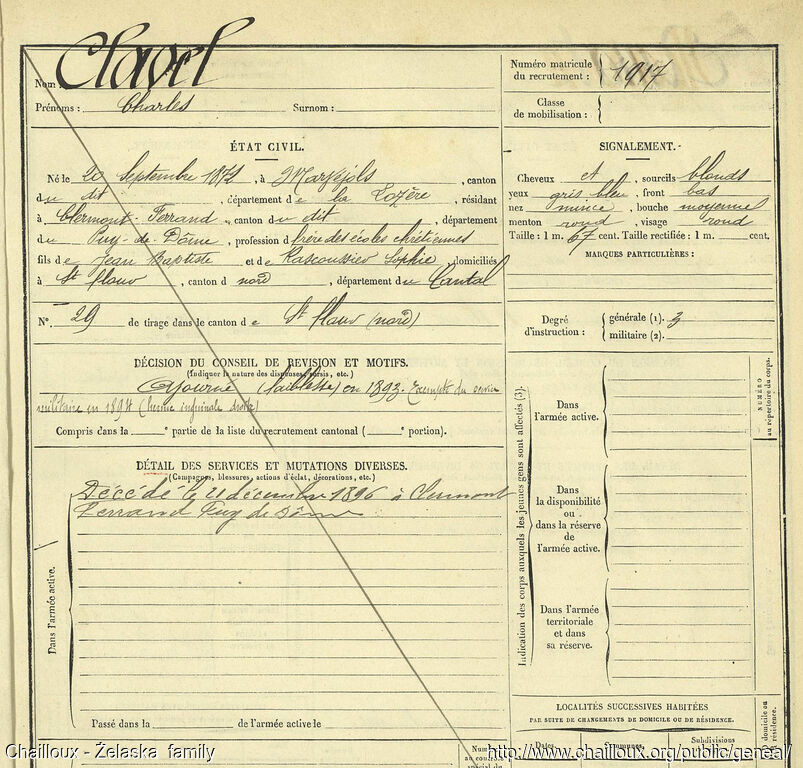 Nom Clavel
Prénoms : Charles Surnom :
Numéro matricule
du recrutement : 1917
Classe
de mobilisation :
ÉTAT CIVIL.
Né le 20 Septembre 1872, à Marvejols, canton
du dit, département de la Lozère, résidant
à Clermont-Ferrand, canton du dit, département
du Puy-de-Dôme, profession d frère des écoles chrétiennes
fils de Jean Baptiste et de Sophie, domiciliés
à St flour, canton d nord, département du Cantal
N° 29 de tirage dans le canton de St flour (nord)
SIGNALEMENT.
Cheveux et, sourcils blonds
yeux gris bleu, front bas
nez mince, bouche moyenne
menton rond, visage rond
Taille : 1 m. 67 cent. Taille rectifiée : 1 m. cent.
MARQUES PARTICULIÈRES :
Degré
d'instruction :
générale (1). 3
militaire (2).
DÉCISION DU CONSEIL DE REVISION ET MOTIFS.
(Indiquer la nature des dispenses, sursis, etc.)
Ajourné (faiblesse) en 1893. Exempté du service
militaire en 1894 (hernie inguinale droite)
Compris dans la e partie de la liste du recrutement cantonal ( e portion).
DÉTAIL DES SERVICES ET MUTATIONS DIVERSES.
(Campagnes, blessures, actions d'éclat, décorations, etc.)
Décédé le 21 décembre 1896 à Clermont
Ferrand Puy de Dôme
Dans l'armée active.
Passé dans la de l'armée active le
Indication des corps auxquels les jeunes gens sont affectés (3).
Dans
l'armée active.
Dans
la disponibilité
ou
dans la réserve
de
l'armée active.
Dans l'armée
territoriale
et dans
sa réserve.
NUMÉRO
au répertoire du corps.
LOCALITÉS SUCCESSIVES HABITÉES
PAR SUITE DE CHANGEMENTS DE DOMICILE OU DE RÉSIDENCE.
Dates. Communes. Subdivisions
domicile ou
résidence.
Numéro
au contrôle
spécial du
Chailloux - Żelaska family
http://www.chailloux.org/public/geneal/